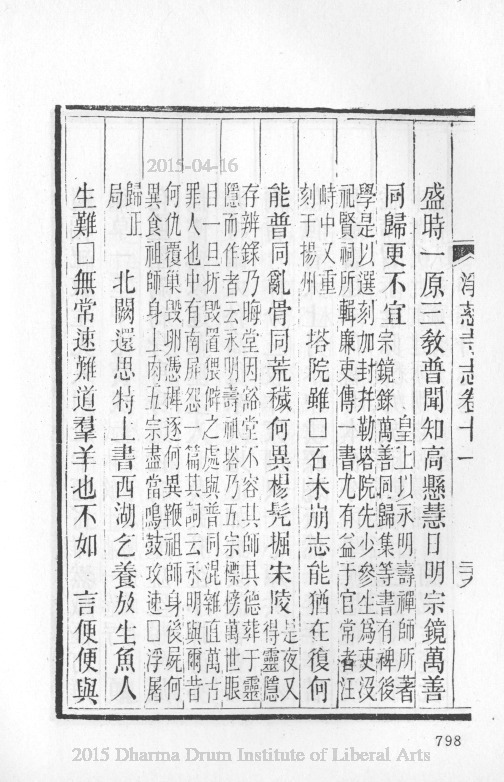 淨慈寺志卷十一 三六
盛時一原三教普聞知高懸慧日明宗鏡萬善
同歸更不宜
皇上以永明壽禪師所著
宗鏡錄萬善同歸集等書有裨後
學是以選刻加封并勒塔院先少參生爲吏沒
祀賢祠所輯廉吏傳一書尤有益于官常者汪
峙中又重
刻于揚州
塔院雖□石未崩志能猶在復何
能普同亂骨同荒穢何異楊髡掘宋陵
是夜又
得靈隱
存辨錄乃晦堂因豁堂不容其師具德葬于靈
隱而作者云永明壽祖塔乃五宗標榜萬世眼
目一旦折毀置猥僻之處與普同混雜直萬古
罪人也中有南屏怨一篇其詞云永明與爾昔
何仇覆巢毀卵憑誰逐何異鞭祖師身後屍何
異食祖師身上肉五宗盡當鳴鼓攻速□浮屠
歸正
局
北闕還思特上書西湖乞養放生魚人
生難□無常速難道羣羊也不如 言便便與
2015-04-16
798
2015 Dharma Drum Institute of Liberal Arts